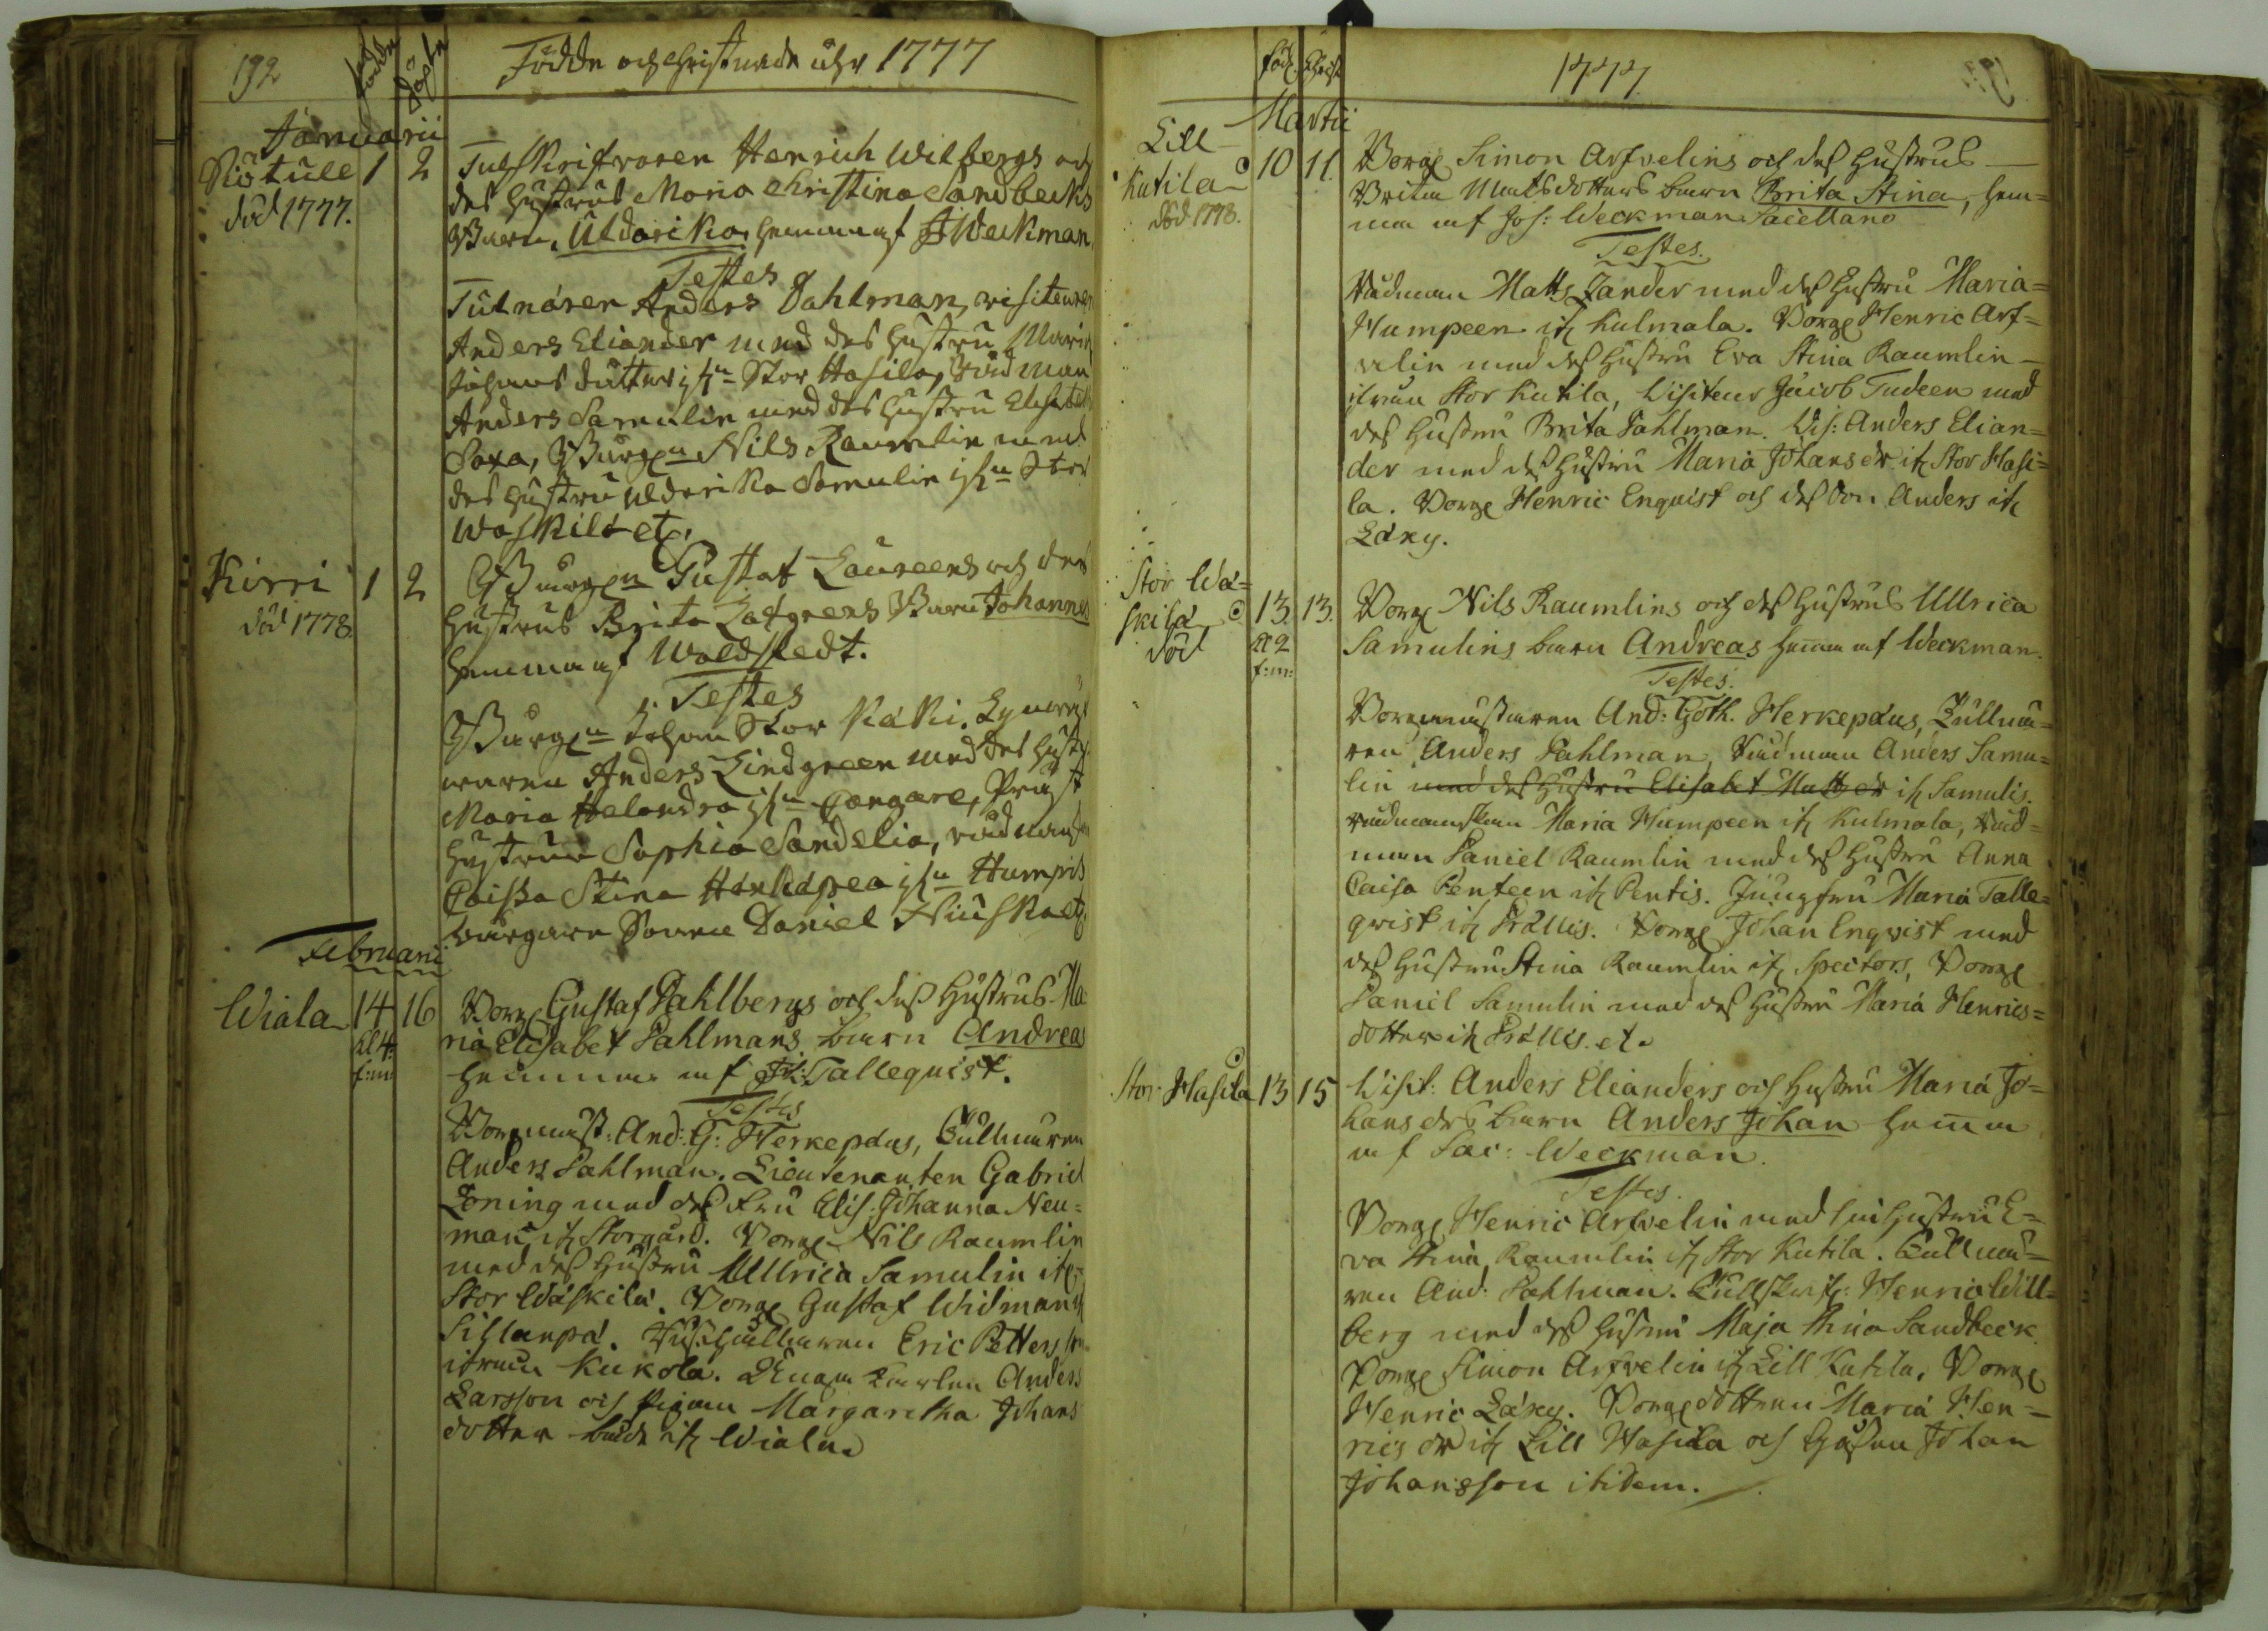 192
födde
döpte
Födde och Christnade åhr 1777
Januarii
Siötull 1 2
död 1777.
Tulskrifvaren Henrich Wilbergs och
des hustrus Maria Christina Sandbecks
Barn, Uldarika, hemma af JWeckman
Testes
Tulnären Anders Dahlman, visiteuren
Anders Eliander med des hustru Maria
Johans dotter ifrn Stor Hasila, Rådman
Anders Samulin med des hustru Elisabeth
Saxa, Burgn Nils Raumlin med
des hustru Uldarika Samulin ifrn Stor
Waskila etc.
Kirri 1 2
död 1778.
Burgn Gustaf Laureens och des
hustrus Brita Löfgreens Barn Johannes
hemma af Woldstedt.
Testes
Burgn Johan Stor Käki,
Anders Lindgreen med des hustr
Maria Helandra ifrn Pangare, Präst
hustrun Sophia Sandelia, rådmans
Caissa Stina Herkepæa ifrn Humpis
burgare Sonen Daniel
Februarii
Wiala 14 16
kl 4
f:m
Borg Gustaf Dahlbergs och dess hustrus Ma-
ria Elisabet Dahlmans barn Andreas
hemma af Tallequist.
Testes
Borgmäst: And: G: Herkepæus, Tullnären
Anders Dahlman. Lieutenanten Gabriel
Löning med dess fru Elis: Johanna Neu=
man if Storgård. Borg Nils Raumlin
med dess hustru Ullrica Samulin if
Stor Wäskilä. Borg Gustaf Widman if
Sillanpä. Eric Petters son
ifrån Kukola. Anders
Larsson och pigan Margaretha Johans
dotter både if Wiala
föd Christ
1777.
Martii
Lill
Kutila 10 11.
död 1778.
Borg Simon Arfvelins och dess hustrus
Britta Mattsdotters barn Brita Stina, hem=
ma af Joh: Weckman Sacellano
Testes.
Rådman Matts Zander med dess hustru Maria
Humpeen if Kulmala. Borg Henric Arf=
velin med dess hustru Eva Stina Raumlin
ifrån Stor Kutila, Visiteur Jacob Tudeen med
des hustru Brita Dahlman. Vis: Anders Elian=
der med dess hustru Maria Johans dr if Stor Hasi=
la. Borg Henric Enquist och dess Son Anders if
Läky.
Stor Wä=
skilä 13. 13.
död kl 2
f:m:
Borg Nils Raumlins och dess hustrus Ullrica
Samulins barn Andreas hema af Weckman.
Testes.
Borgmästaren And: Goth. Herkepæus, Tullnä=
ren Anders Dahlman, Rådman Anders Samu=
lin med dess hustru Elisabet Matts dr if Samulis.
rådmanskan Maria Humpeen if Kulmala, Råd=
man Daniel Raumlin med dess hustru Anna
Caisa Penteen if Pentis. Jungfru Maria Talle=
qvist if Prållis. Borg Johan Enqvist med
dess hustru Stina Raumlin if Spectors, Borg
Daniel Samulin med dess hustru Maria Henrics=
dotter if Prållis. etc
Stor Hasila 13 15
Visit: Anders Elianders och hustru Maria Jo=
hans drs barn Anders Johan hemma
af Sac: Weckman.
Testes.
Borg Henric Arfvelin med sin hustru E=
va Stina Raumlin if Stor Kutila. Tullnä=
ren And: Dahlman. Tullskrif: Henric Will=
berg med dess hustru Maja Stina Sandbeck
Borg Simon Arfvelin if Lill Kutila, Borg
Henric Läky. Borgdottren Maria Hen=
rics dr if Lill Hasila och Johan
Johansson itidem.